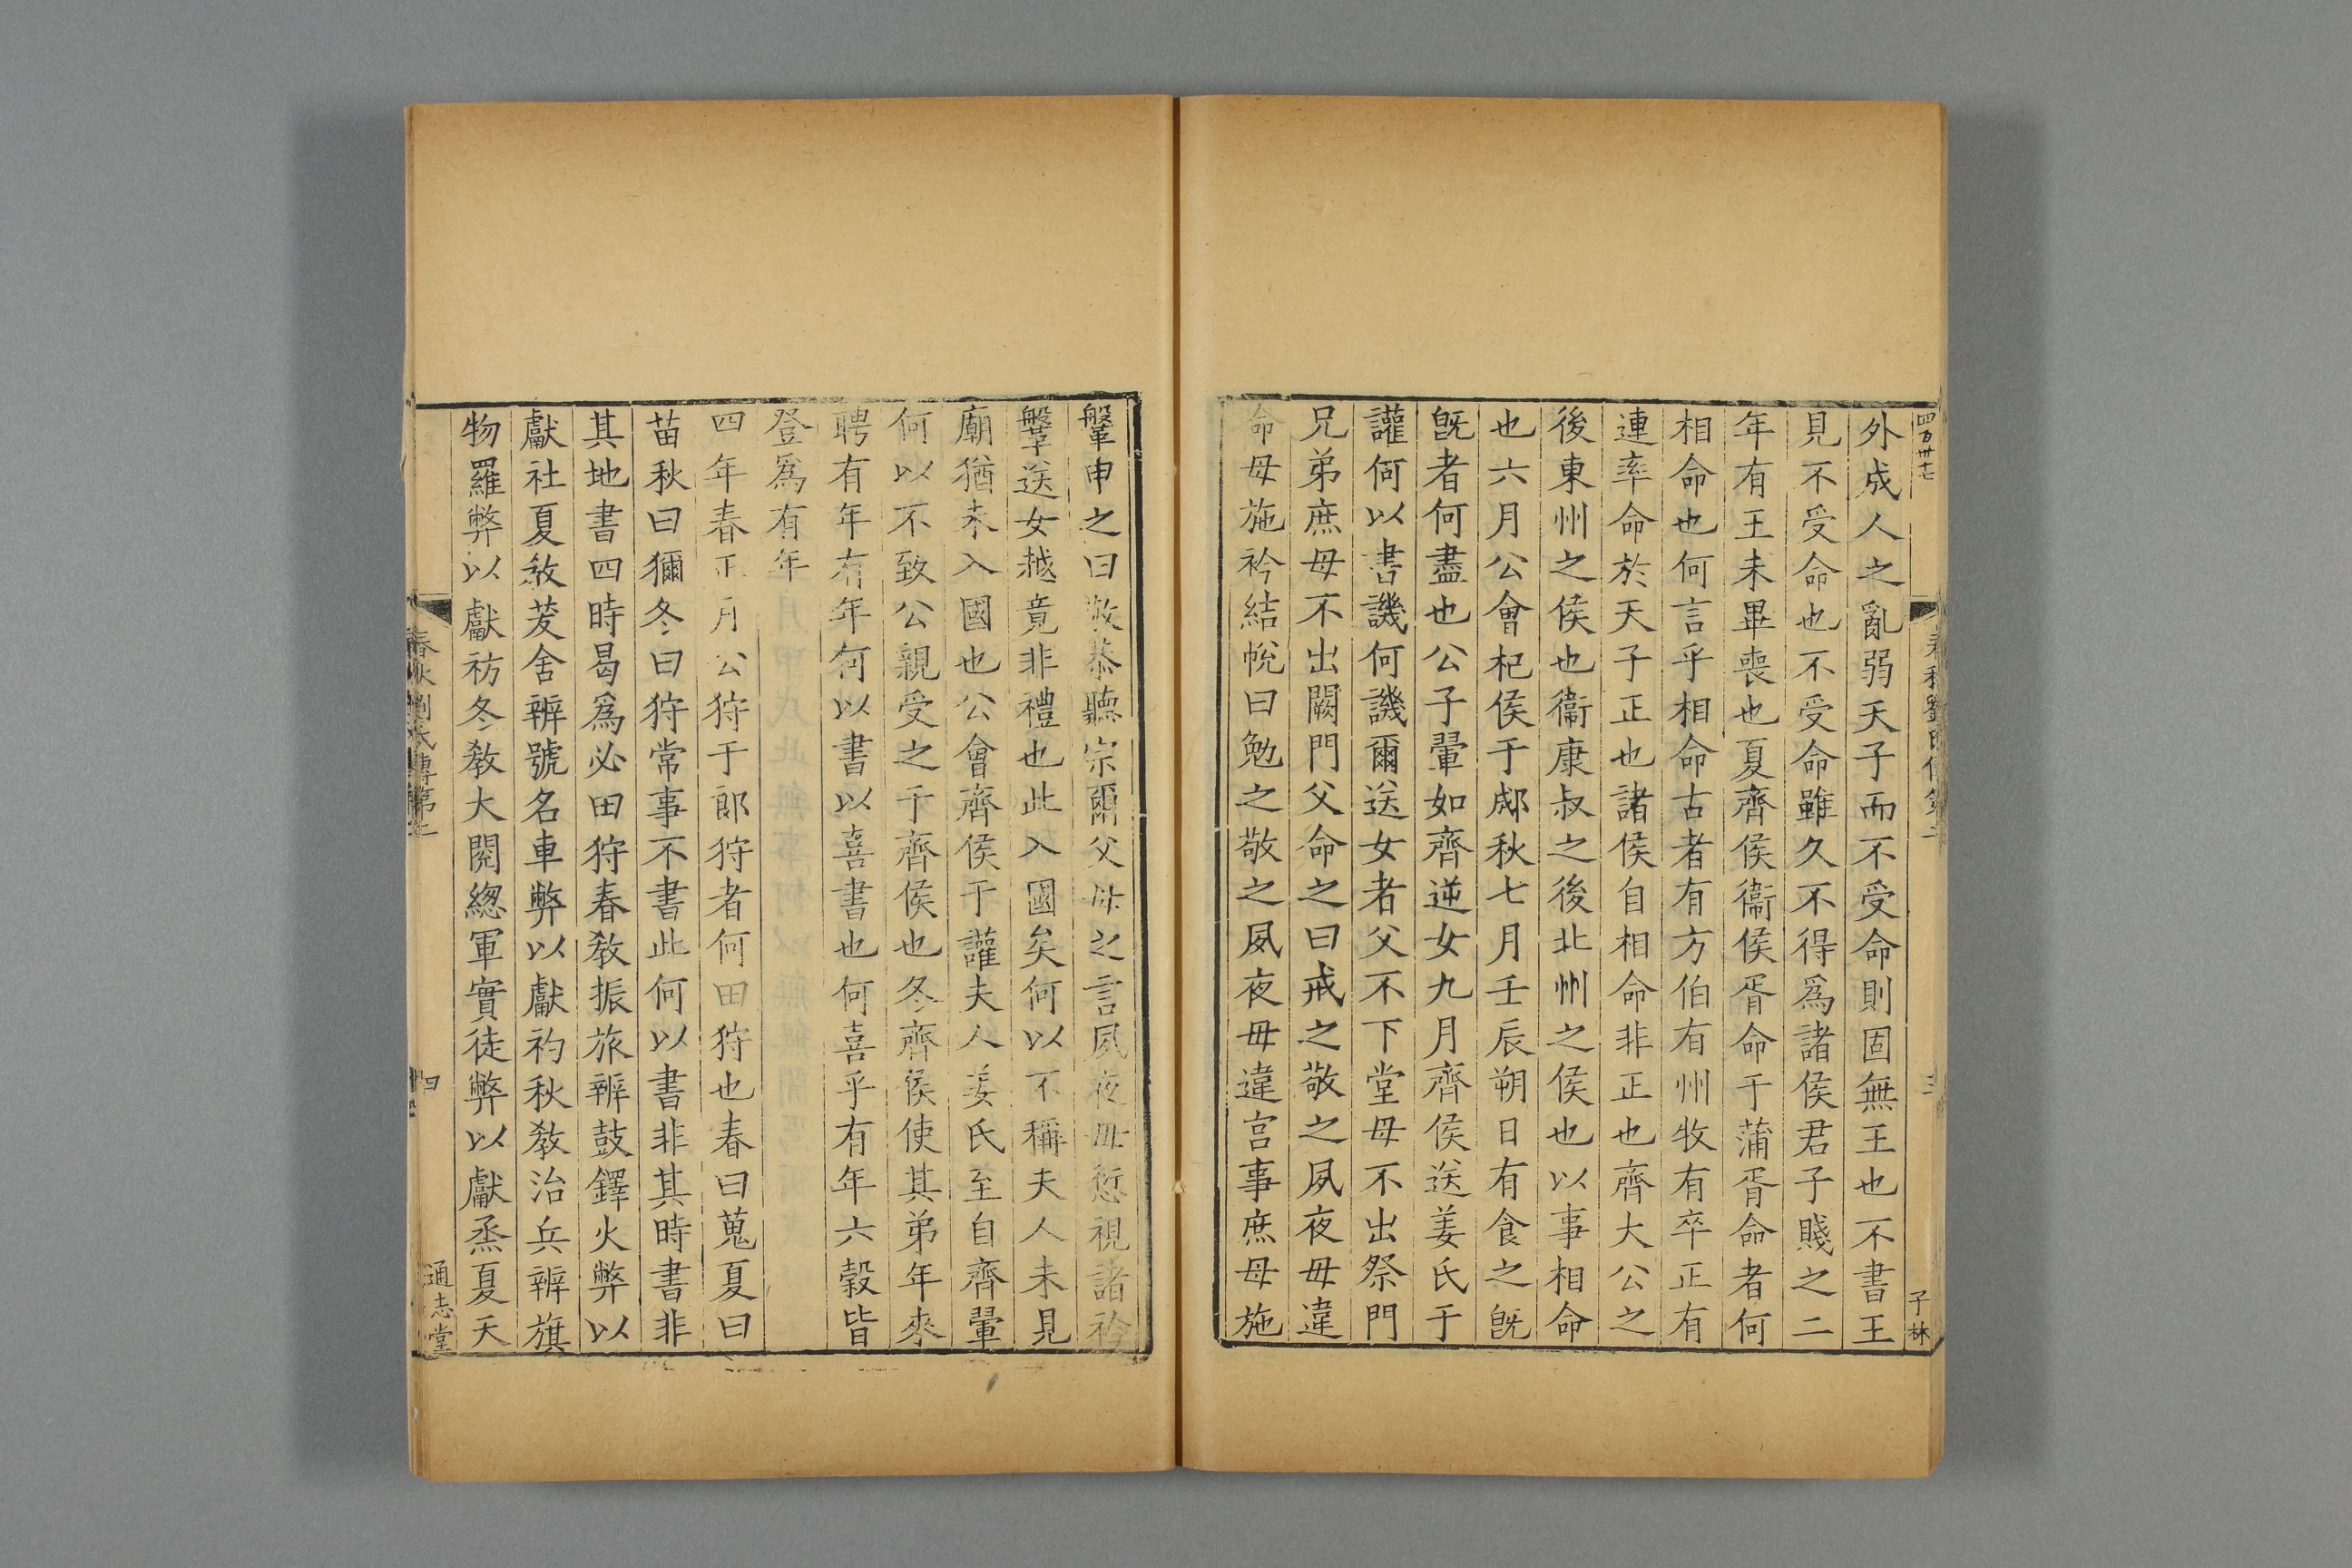 四百卅七
子林
外成人之亂弱天子而不受命則固無王也不書王
見不受命也不受命雖久不得爲諸侯君子賤之二
年有王未畢喪也夏齊侯衞侯胥命于蒲胥命者何
相命也何言乎相命古者有方伯有州牧有卒正有
連率命於天子正也諸侯自相命非正也齊大公之
後東州之侯也衞康叔之後北州之侯也以事相命
也六月公會杞侯于郕秋七月壬辰朔日有食之旣
旣者何盡也公子翬如齊逆女九月齊侯送姜氏于
讙何以書譏何譏爾送女者父不下堂母不出祭門
兄弟庶母不出闕門父命之曰戒之敬之夙夜毋違
命母施衿結帨曰勉之敬之夙夜毋違宫事庶母施
鞶申之曰敬恭聽宗爾父母之言夙夜毋愆視諸衿
鞶送女越竟非禮也此入國矣何以不稱夫人未見
廟猶未入國也公會齊侯于讙夫人姜氏至自齊翬
何以不致公親受之于齊侯也冬齊侯使其弟年來
聘有年有年何以書以喜書也何喜乎有年六穀皆
登爲有年
四年春正月公狩于郎狩者何田狩也春曰蒐夏曰
苗秋曰獮冬曰狩常事不書此何以書非其時書非
其地書四時曷爲必田狩春教振旅辨鼓鐸火弊以
獻社夏教茇舍辨號名車弊以獻礿秋教治兵辨旗
物羅弊以獻祊冬教大閱緫軍實徒弊以獻烝夏天
春秋劉氏傳第
四
通志堂